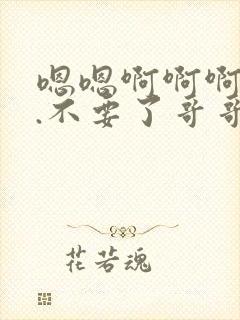 嗯嗯啊啊啊
.不要了哥哥
花若魂